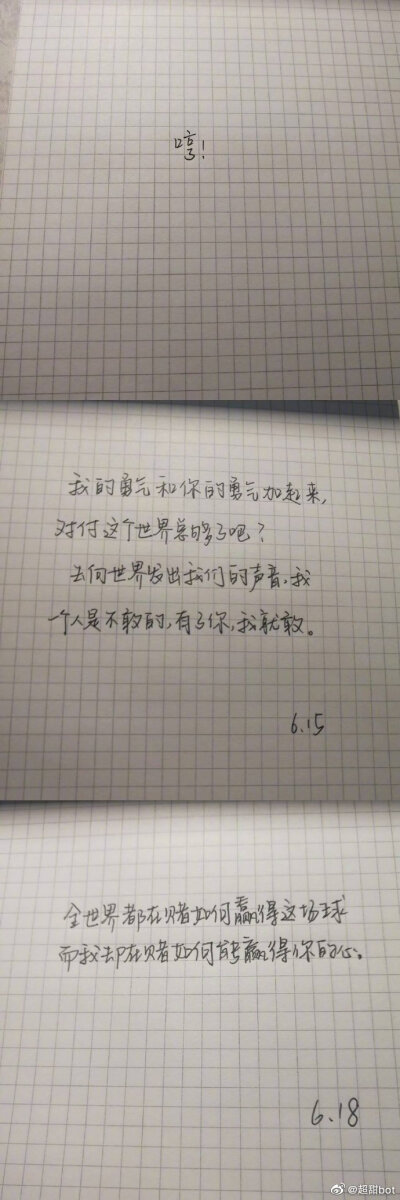 哼！
我的勇气和你的勇气加起来，
对付这个世界总够了吧？
去向世界发出我们的声音，我
一个人是不敢的，有了你，我就敢。
6.15
全世界都在赌如何赢得这场球
而我却在赌如何能赢得你的心。
6.18
@超甜bot